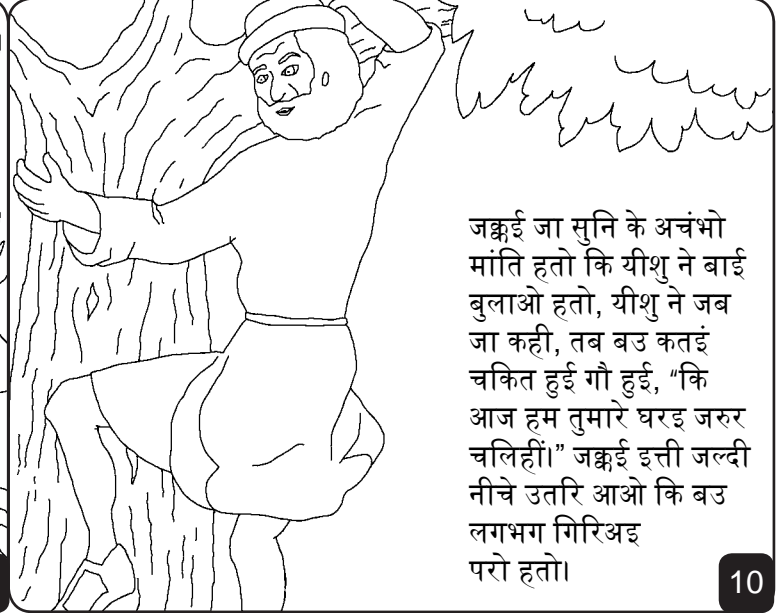 जक्कई जा सुनि के अचंभो
मांति हतो कि यीशु ने बाई
बुलाओ हतो, यीशु ने जब
जा कही, तब बउ कतइं
चकित हुई गौ हुई, “कि
आज हम तुमारे घरइ जरुर
चलिहीं।” जक्कई इत्ती जल्दी
नीचे उतरि आओ कि बउ
लगभग गिरिअइ
परो हतो।
10